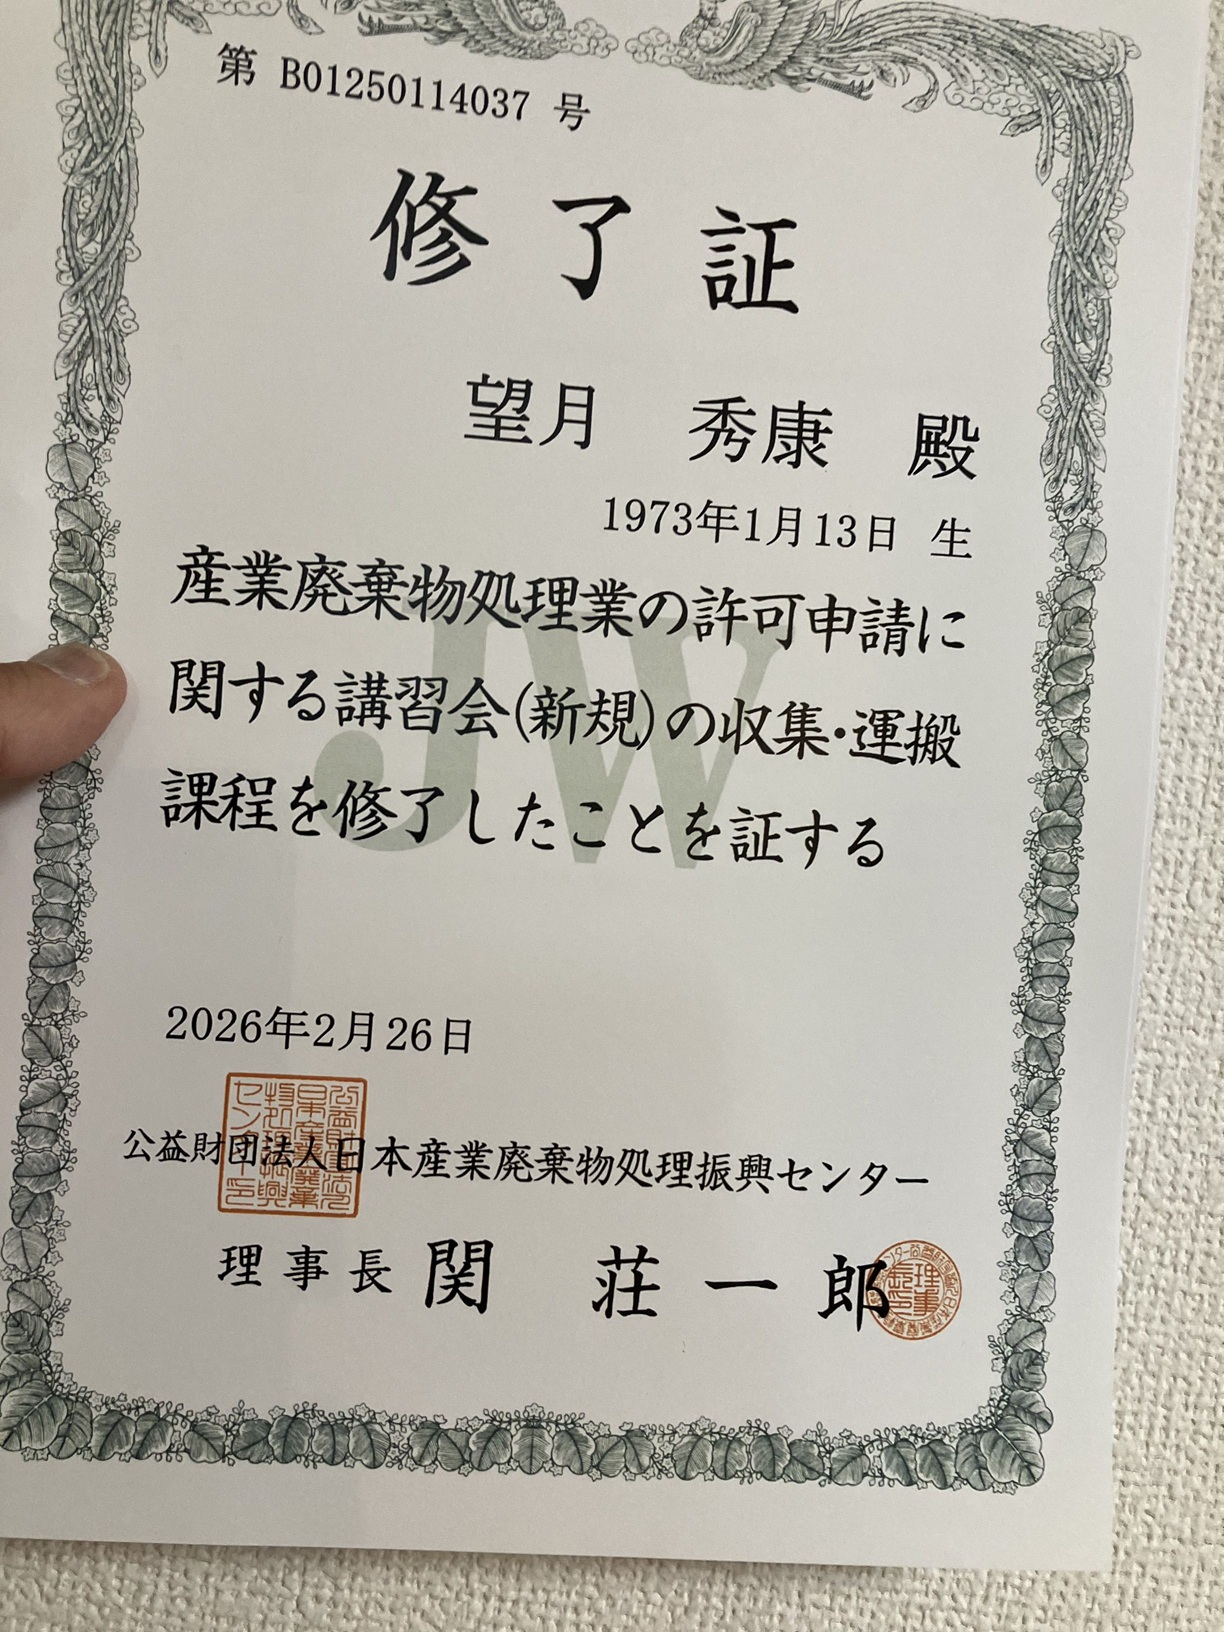 第 B01250114037 号
修了証
望月 秀康 殿
1973年1月13日 生
産業廃棄物処理業の許可申請に
関する講習会(新規)の収集・運搬
課程を修了したことを証する
JW
2026年2月26日
公益財団法人日本産業廃棄物処理振興センター
理事長 関 荘一郎